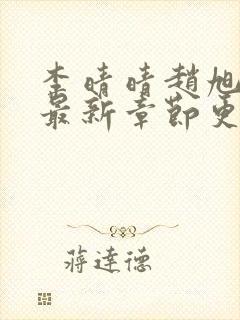 李晴晴趙旭
最新章節更
蔣達德